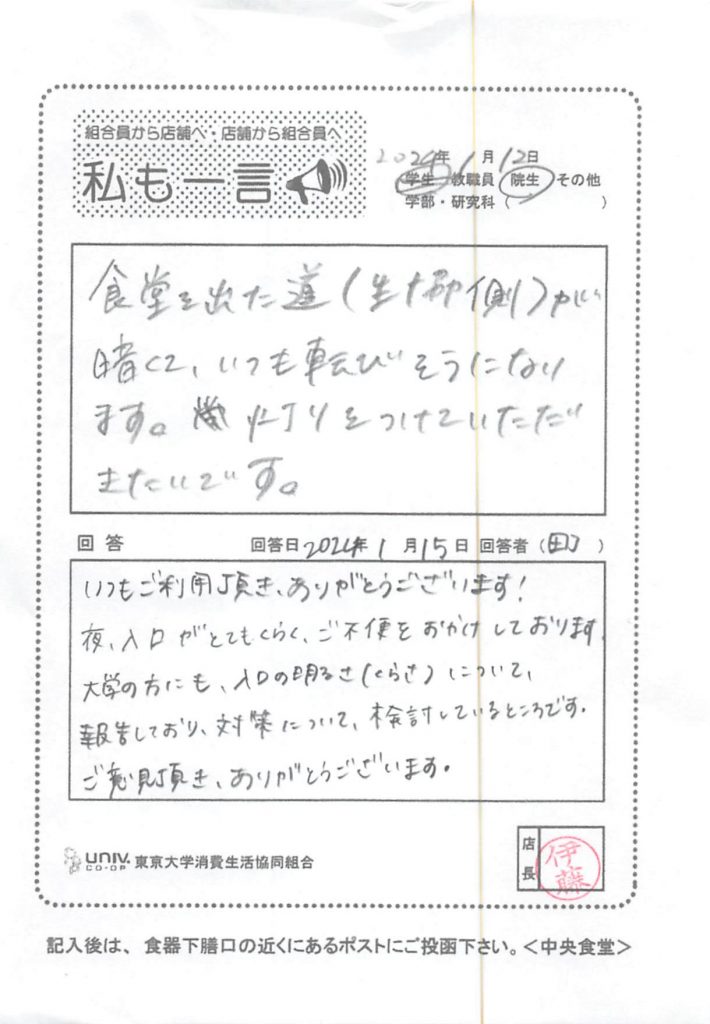 組合員から店舗へ・店舗から組合員へ
私も一言
2024年1月12日
学生 教職員 院生 その他
学部・研究科( )
食堂を出た道(生協側)が
暗くて、いつも転びそうになり
ます。灯りをつけていただ
きたいです。
回答 回答日2024年1月15日 回答者(町)
いつもご利用頂き、ありがとうございます!
夜、入口がとてもくらく、ご不便をおかけしております。
大学の方にも、入口の明るさ(くらさ)について、
報告しており、対策について、検討しているところです。
ご意見頂き、ありがとうございます。
UNIV. CO-OP 東京大学消費生活協同組合
店長 伊藤
記入後は、食器下膳口の近くにあるポストにご投函下さい。<中央食堂>